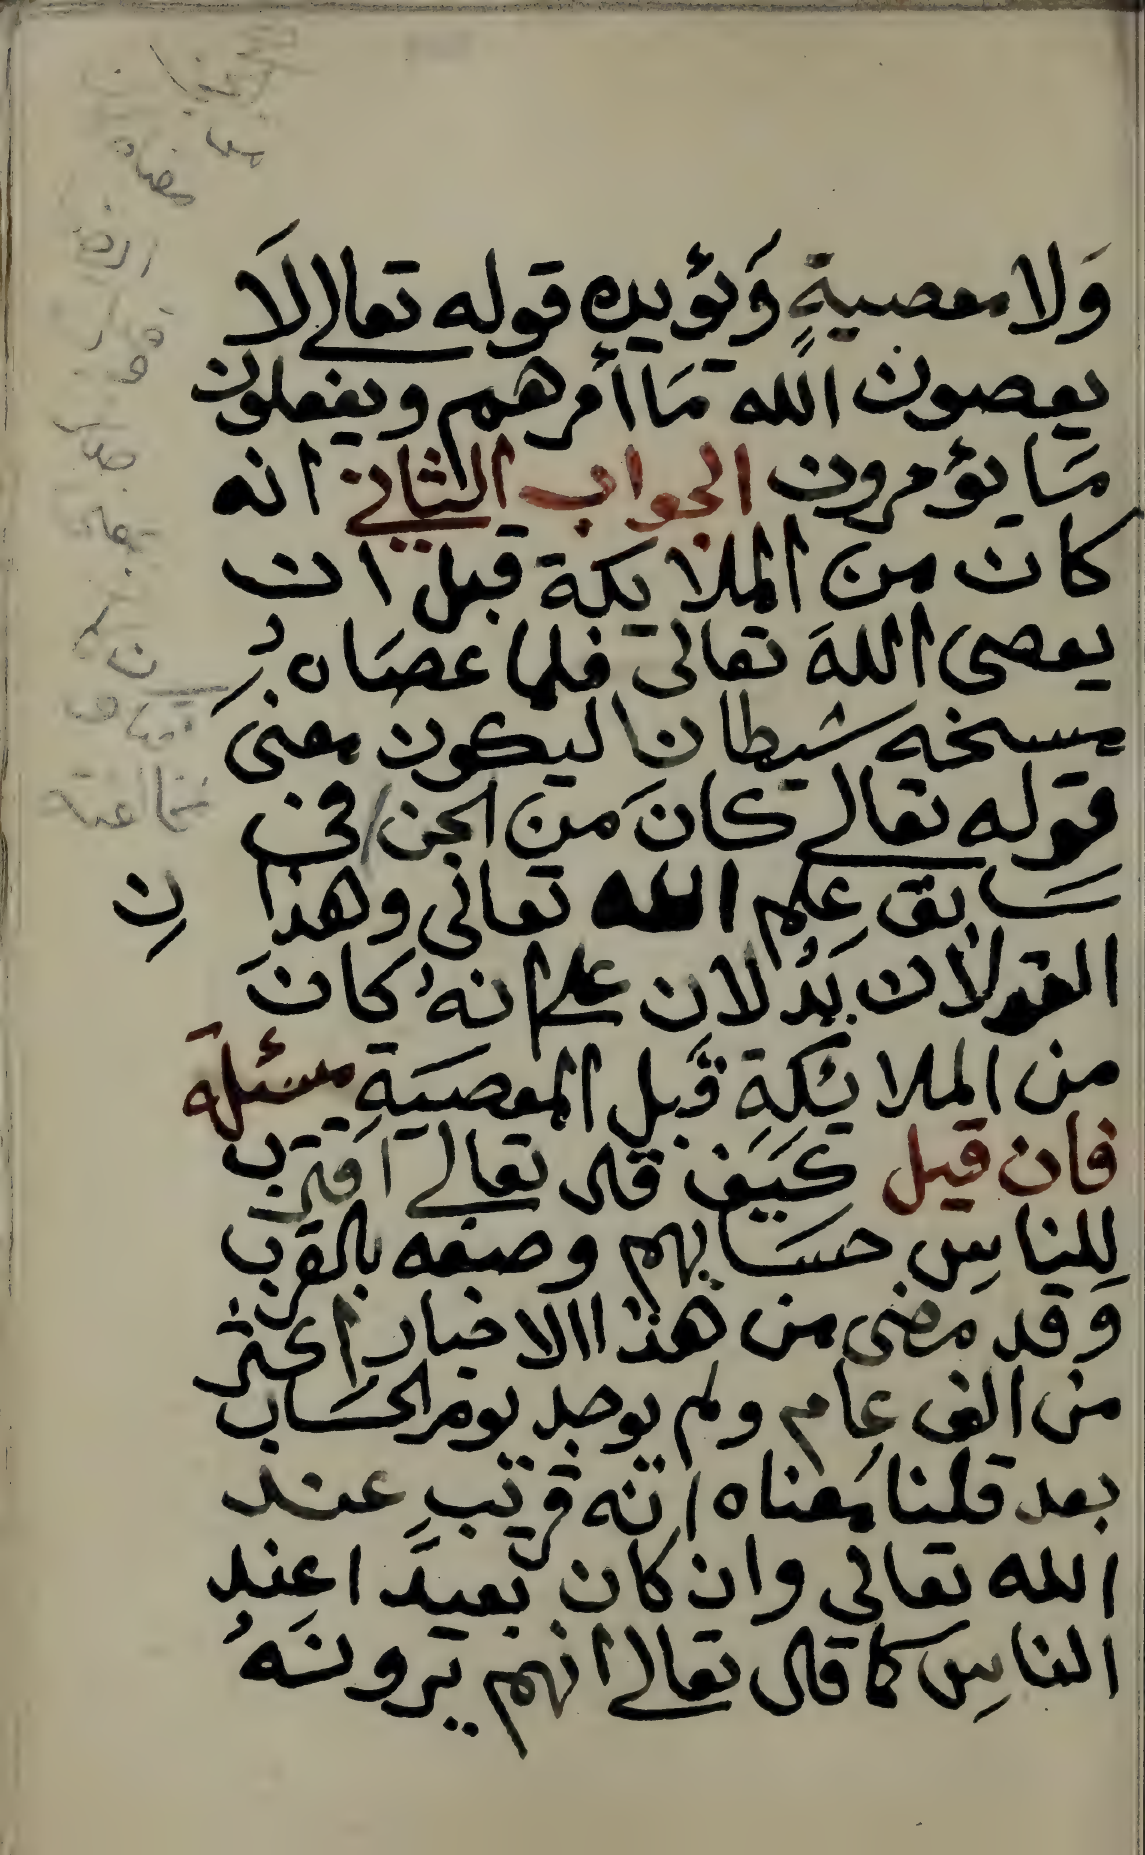 وَلا معصيةٍ وَيؤيده قوله تعالى لَا
يعصون الله مَا أمرهم ويفعلون
مَا يؤمرون الجواب الثاني انه
كان من الملايكة قبل ان
يعصى اللهَ تعالى فلما عصَاه
مسخه شيطانا ليكون معنى
قوله تعالى كانَ من الجن / فى
سَابق عِلم الله تعالى وهذا
ن
القولان يَدُلان على انهُ كانَ
من الملائكةِ قَبل المعصيَةِ مسئلة
فان قيل كَيَف قال تعالى اقترب
لِلناسِ حسَابهم وصفه بالقرب
وقد مضى من هذا الاخبار اكثر
من الف عام ولم يوجد يوم الحسَاب
بعد قلنا مَعناه انه قريبٍ عند
الله تعالى وان كان بعيدًا عِند
الناسِ كما قال تعالى انهم يَرونَهُ